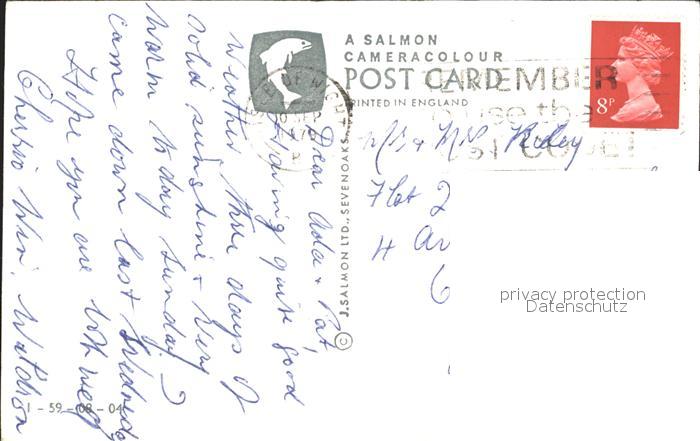 A SALMON
CAMERACOLOUR
POST CARD
PRINTED IN ENGLAND
© J. SALMON LTD., SEVENOAKS
REMEMBER
use the
POST CODE
ISLE OF WIGHT
SEP
8P
Dear Ada & Pat,
Having quite good
weather three days of
solid sunshine & very
warm to day Sunday
came down last Wednesday
Hope you are both well
Cheerio Win. Watson
1-59-08-04
Mr & Mrs
Flat 2
4
6
privacy protection
Datenschutz